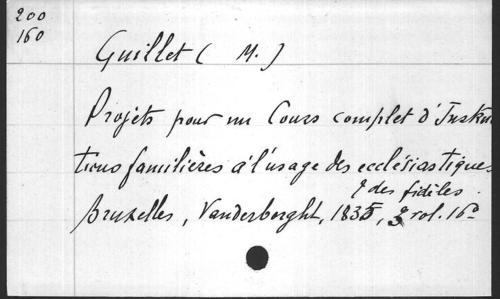 200
160
Guillet (M.)
Projets pour un Cours complet d'Instruc
tions familières à l'usage des ecclésiastiques
& des fidèles.
Bruxelles, Vanderborght, 1835, 3 vol. 16º